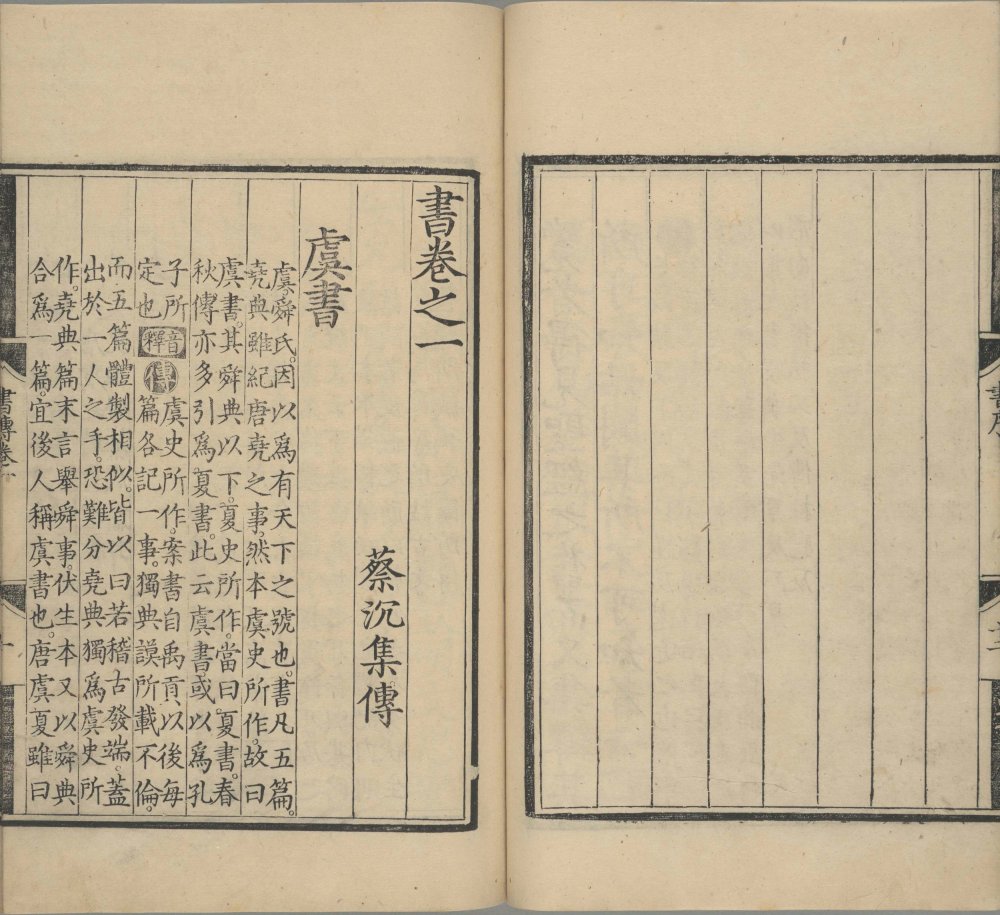 書序
書卷之一
蔡沉集傳
虞書
虞舜氏。因以爲有天下之號也。書凡五篇。
堯典雖紀唐堯之事。然本虞史所作。故曰
虞書。其舜典以下。夏史所作。當曰夏書。春
秋傳亦多引爲夏書。此云虞書。或以爲孔
子所
定也
音釋
傳
虞史所作。案書自禹貢以後每
篇各記一事。獨典謨所載不倫。
而五篇體製相似。皆以曰若稽古發端。蓋
出於一人之手。恐難分堯典獨爲虞史所
作。堯典篇末言舉舜事。伏生本又以舜典
合爲一篇。宜後人稱虞書也。唐虞夏雖曰
書傳卷一